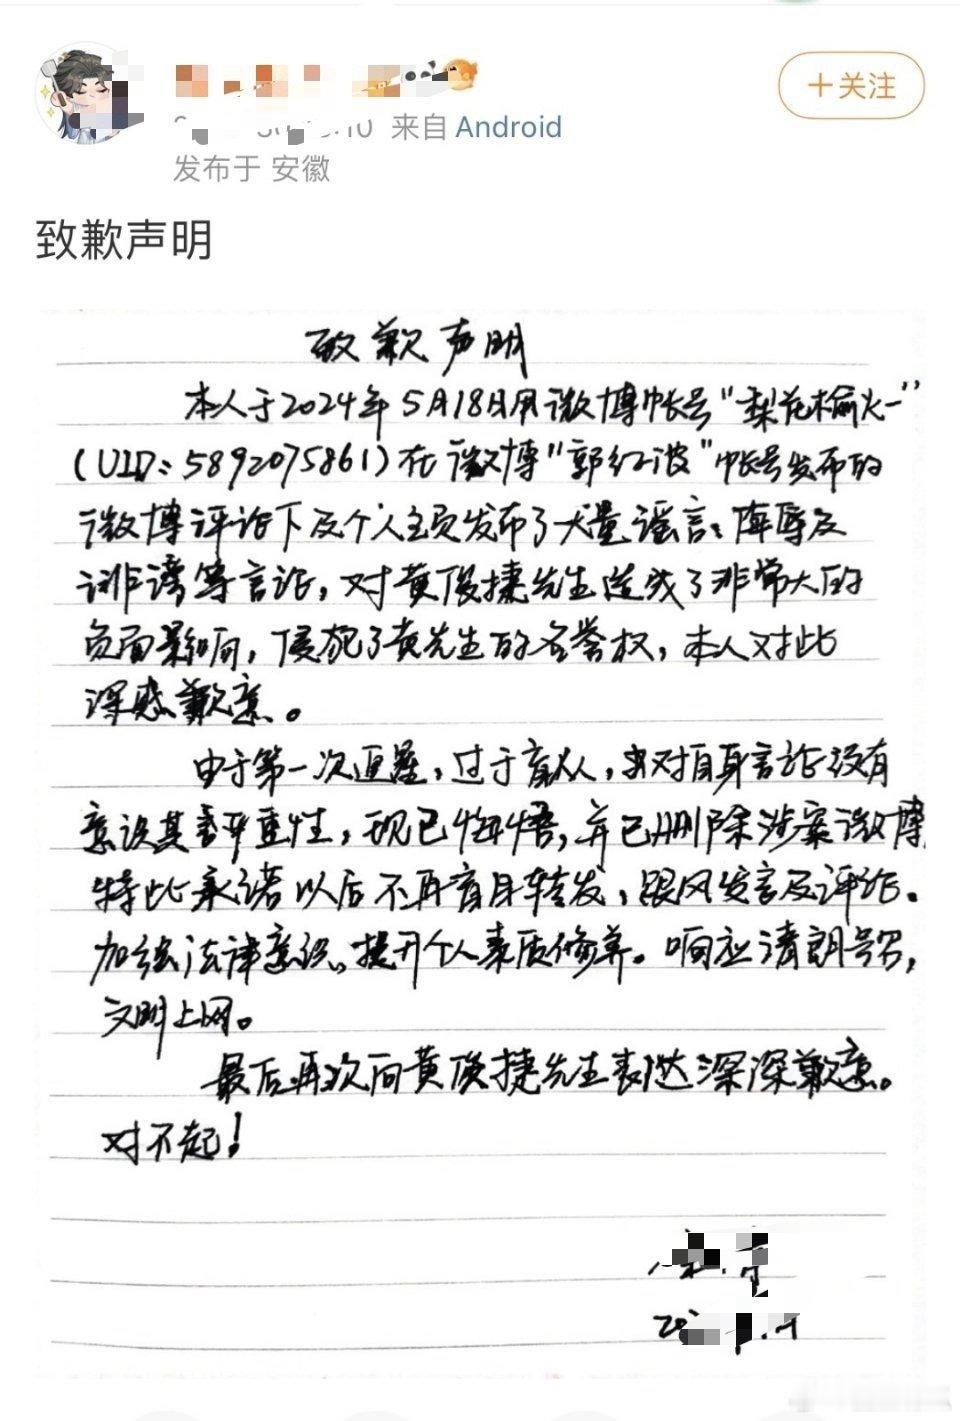 +关注
来自 Android
发布于 安徽
致歉声明
致歉声明
本人于2024年5月18日用微博帐号“梨花榆火一”
(UID:5892075861)在微博“郭红波”帐号发布的
微博评论下及个人主页发布了大量谣言、侮辱及
诽谤等言论,对黄俊捷先生造成了非常大的
负面影响,侵犯了黄先生的名誉权,本人对此
深感歉意。
由于第一次追星,过于盲从,对自身言论没有
意识其严重性,现已悔悟,并已删除涉案微博
特此承诺以后不再盲目转发,跟风发言及评论。
加强法律意识、提升个人素质修养。响应清朗号召,
文明上网。
最后再次向黄俊捷先生表达深深歉意。
对不起!